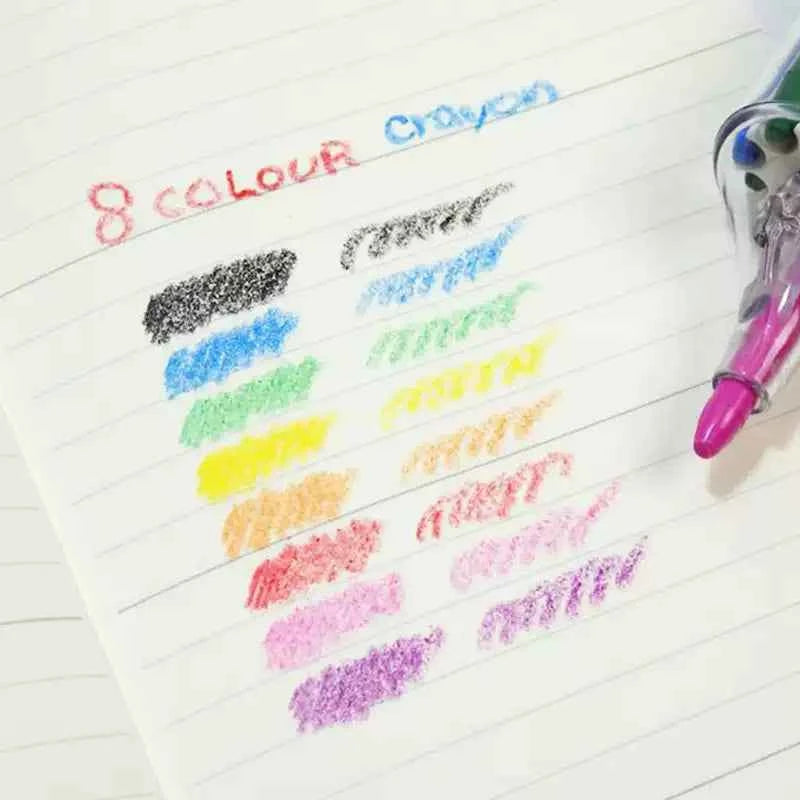 8 COLOUR crayon